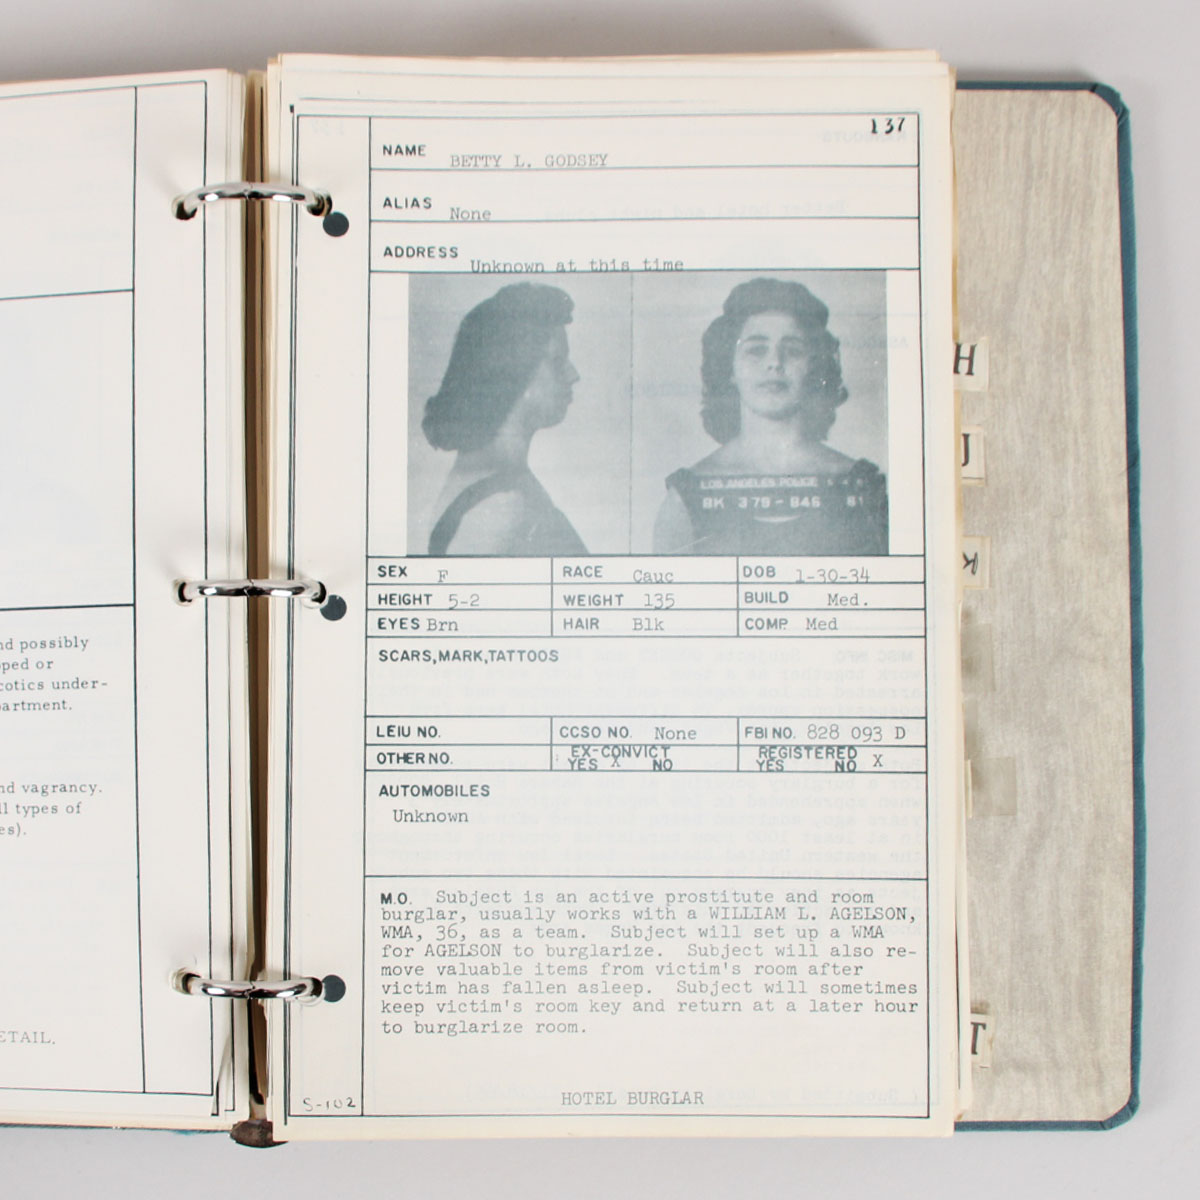 nd possibly
ped or
cotics under-
artment.
nd vagrancy.
ll types of
es).
ETAIL.
137
NAME BETTY L. GODSEY
ALIAS None
ADDRESS Unknown at this time
LOS ANGELES POLICE
BK 379-846 61
SEX F RACE Cauc DOB 1-30-34
HEIGHT 5-2 WEIGHT 135 BUILD Med.
EYES Brn HAIR Blk COMP. Med
SCARS,MARK,TATTOOS
LEIU NO. CCSO NO. None FBI NO. 828 093 D
OTHER NO. EX-CONVICT REGISTERED
YES X NO YES NO X
AUTOMOBILES
Unknown
M.O. Subject is an active prostitute and room
burglar, usually works with a WILLIAM L. AGELSON,
WMA, 36, as a team. Subject will set up a WMA
for AGELSON to burglarize. Subject will also re-
move valuable items from victim's room after
victim has fallen asleep. Subject will sometimes
keep victim's room key and return at a later hour
to burglarize room.
HOTEL BURGLAR
S-102
H
J
K
T